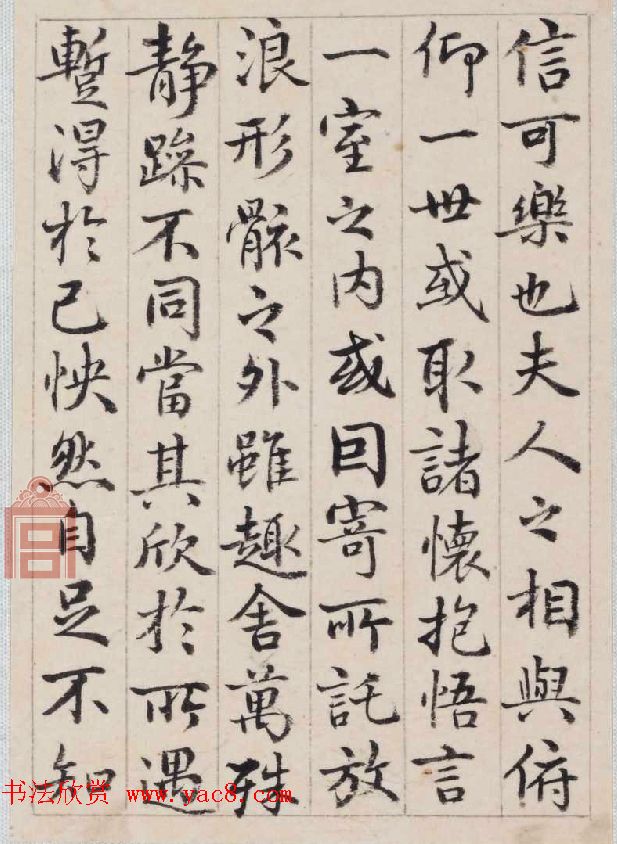 信可樂也夫人之相與俯
仰一世或取諸懷抱悟言
一室之内或因寄所託放
浪形骸之外雖趣舍萬殊
靜躁不同當其欣於所遇
蹔得於己怏然自足不知
书法欣赏 www.yac8.com